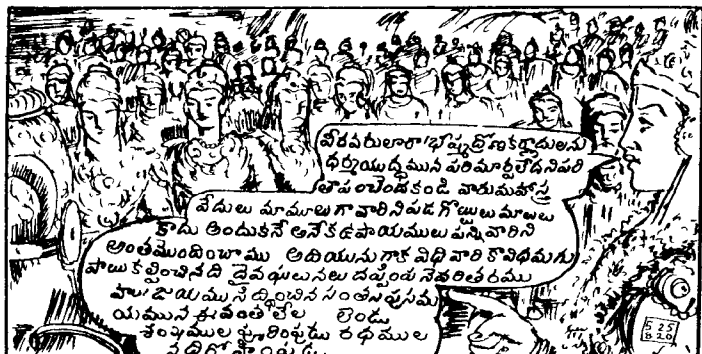 వీరవరులారా భీష్మద్రోణకర్ణాదులను
ధర్మయుద్ధమున పరిమార్పలేదని పరి
తాపం చెందకండి వారు మహాస్త్ర
వేదులు మామూలుగా వారిని పడగొట్టుట మాటలు
కాదు అందుకనే అనేక ఉపాయములు పన్ని వారిని
అంతమొందించాము అదియునుగాక విధి వారికావిధమగు
పాటు కల్పించినది దైవఘటనలు దప్పింప నెవరితరము
జయము సిద్ధించిన సంతస
యమున ఈ వంత లేల లెండు
శంఖముల పూరింపుడు రథముల
5 25
8 20